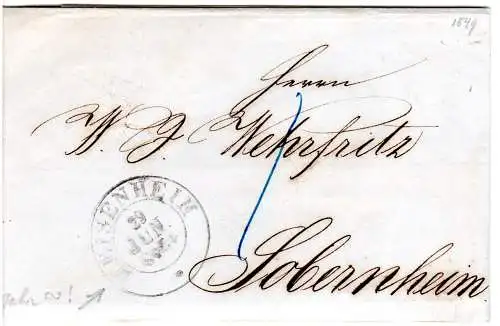 1849
Herrn
W. J. Wehrfritz
1
Sobernheim
MEISENHEIM
29
JUN
Jahr ∞! ↗